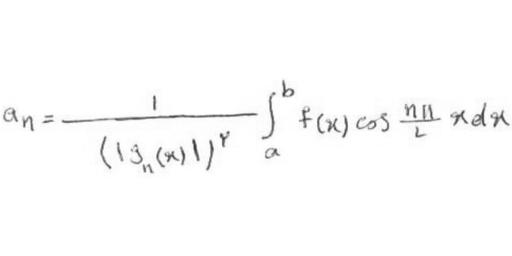 aₙ = 1 / (|gₙ(x)|)^۲ ∫_a^b f(x) cos nΠ/L x dx